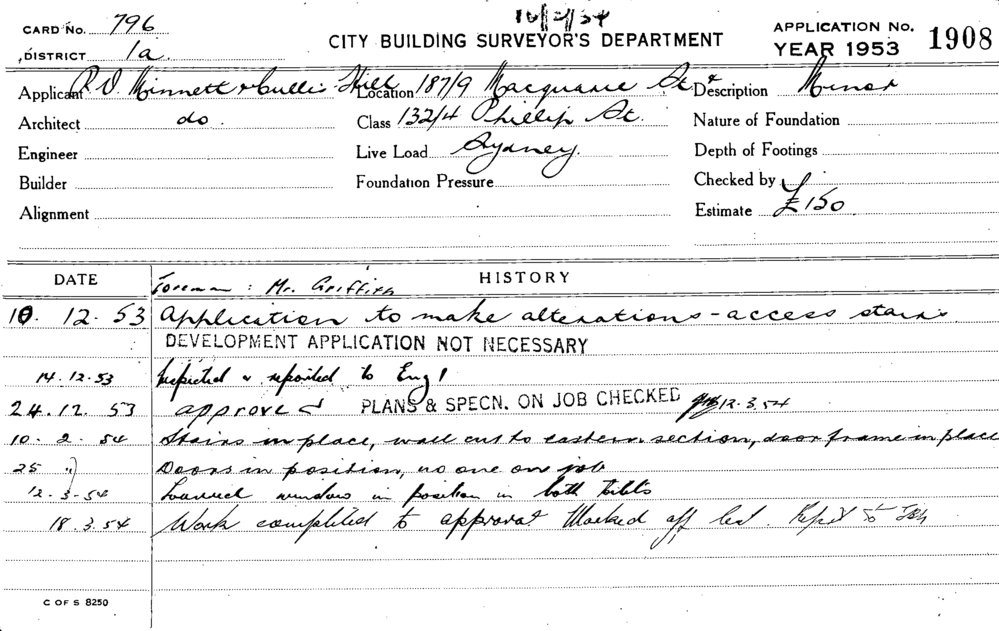 16/2/54
CARD No. 796
DISTRICT 1a.
CITY BUILDING SURVEYOR'S DEPARTMENT
APPLICATION No. 1908
YEAR 1953
Applicant R.D. Minnett & Cullis-Hill Location 187/9 Macquarie St & Description Minor
Architect do. Class 132/4 Phillip St. Nature of Foundation
Engineer Live Load Sydney. Depth of Footings
Builder Foundation Pressure Checked by
Alignment Estimate £150
DATE HISTORY
Foreman: Mr. Griffith
10. 12. 53 Application to make alterations - access stairs
DEVELOPMENT APPLICATION NOT NECESSARY
14.12.53 Inspected & reported to Eng
24.12. 53 approved PLANS & SPECN. ON JOB CHECKED 12.3.54
10. 2. 54 Stairs in place, wall cut to eastern section, door frame in place
25 " Doors in position, no one on job
12.3.54 Louvred windows in position in both toilets
18.3.54 Work completed to approval Marked off list. to
C OF S 8250